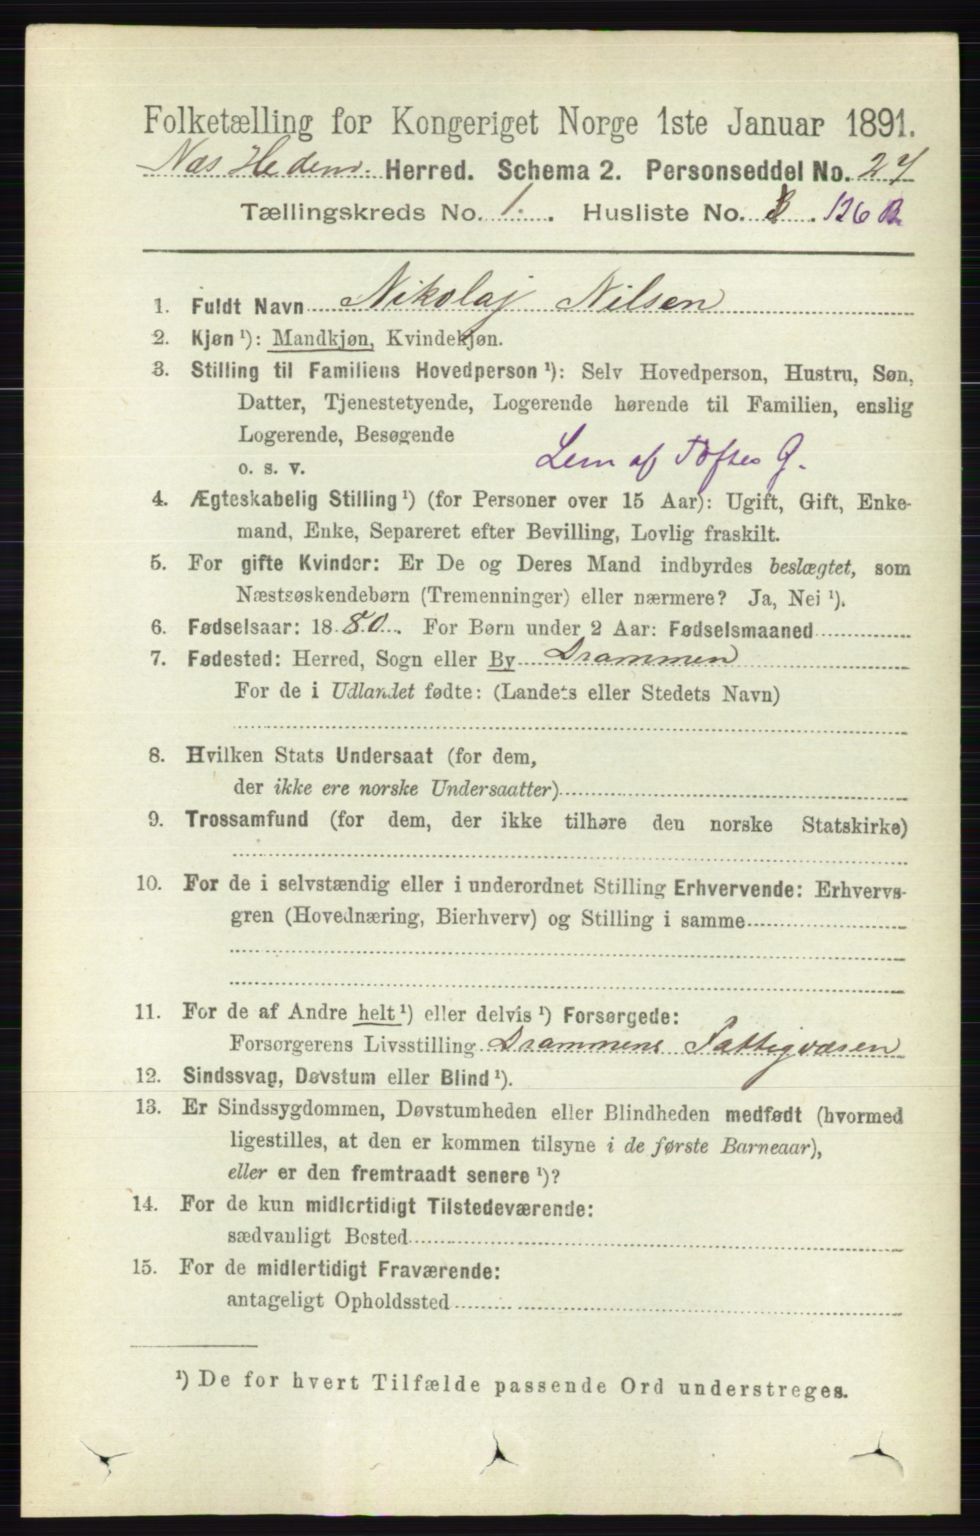 Folketælling for Kongeriget Norge 1ste Januar 1891.
Næs Hedem. Herred. Schema 2. Personseddel No. 27
Tællingskreds No. 1. Husliste No. 126 B.
1. Fuldt Navn Nikolaj Nilsen
2. Kjøn ¹): Mandkjøn, Kvindekjøn.
3. Stilling til Familiens Hovedperson ¹): Selv Hovedperson, Hustru, Søn,
Datter, Tjenestetyende, Logerende hørende til Familien, enslig
Logerende, Besøgende
o. s. v. Lem af Toftes G.
4. Ægteskabelig Stilling ¹) (for Personer over 15 Aar): Ugift, Gift, Enke-
mand, Enke, Separeret efter Bevilling, Lovlig fraskilt.
5. For gifte Kvinder: Er De og Deres Mand indbyrdes beslægtet, som
Næstsøskendebørn (Tremenninger) eller nærmere? Ja, Nei ¹).
6. Fødselsaar: 1880. For Børn under 2 Aar: Fødselsmaaned
7. Fødested: Herred, Sogn eller By Drammen
For de i Udlandet fødte: (Landets eller Stedets Navn)
8. Hvilken Stats Undersaat (for dem,
der ikke ere norske Undersaatter)
9. Trossamfund (for dem, der ikke tilhøre den norske Statskirke)
10. For de i selvstændig eller i underordnet Stilling Erhvervende: Erhvervs-
gren (Hovednæring, Bierhverv) og Stilling i samme
11. For de af Andre helt ¹) eller delvis ¹) Forsørgede:
Forsørgerens Livsstilling Drammens Fattigvæsen
12. Sindssvag, Døvstum eller Blind ¹).
13. Er Sindssygdommen, Døvstumheden eller Blindheden medfødt (hvormed
ligestilles, at den er kommen tilsyne i de første Barneaar),
eller er den fremtraadt senere ¹)?
14. For de kun midlertidigt Tilstedeværende:
sædvanligt Bosted
15. For de midlertidigt Fraværende:
antageligt Opholdssted
¹) De for hvert Tilfælde passende Ord understreges.